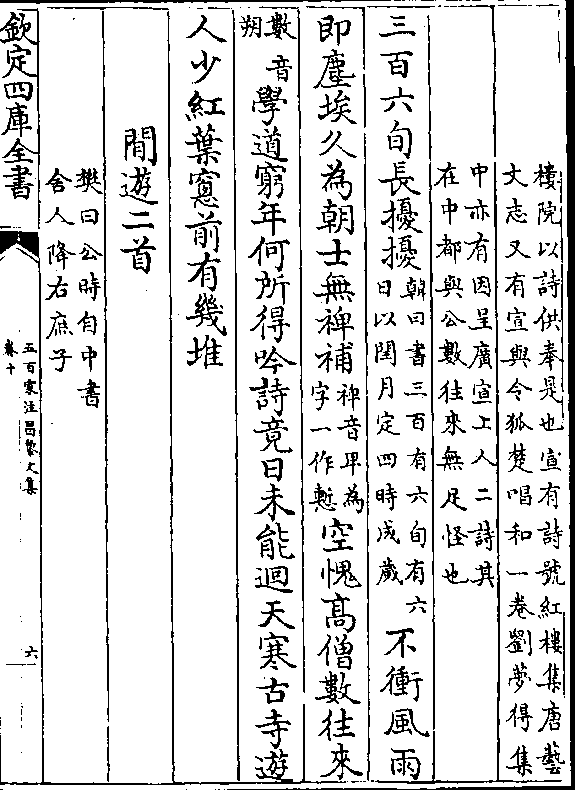 棲院以詩供奉是也宣有詩號紅樓集唐藝
文志又有宣與令狐楚唱和一卷劉夢得集
中亦有因呈廣宣上人二詩其
在中都與公數往來無足怪也
三百六旬長擾擾韓曰書三百有六旬有六日以閏月定四時成歲不衝風雨
即塵埃久為朝士無裨補裨音卑為字一作慙空愧高僧數往來
數音朔學道窮年何所得吟詩竟日未能迴天寒古寺遊
人少紅葉窻前有幾堆
閒遊二首
樊曰公時自中書
舍人降右庶子
欽定四庫全書
五百家注昌黎文集
卷十
六